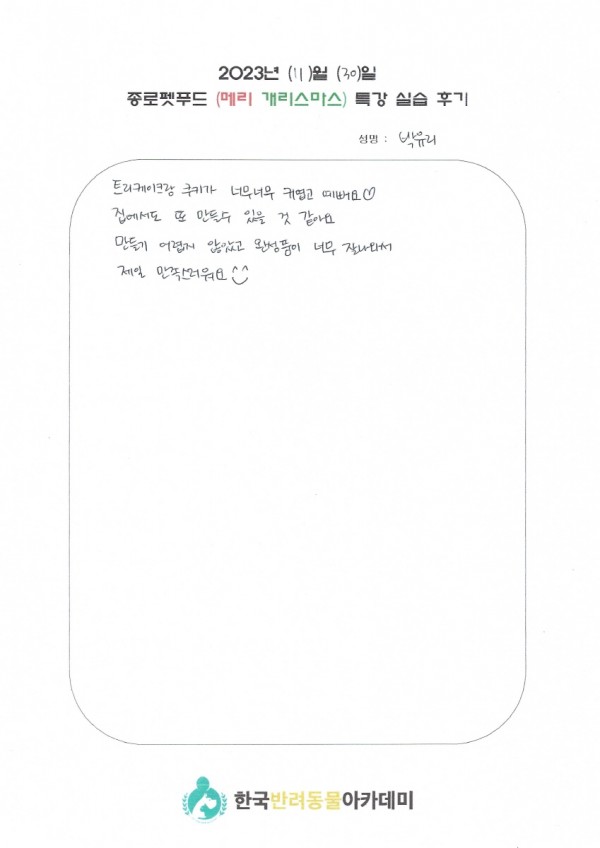 2023년 (11)월 (30)일
종로펫푸드 (메리 개리스마스) 특강 실습 후기
성명 : 박유리
트리케이크랑 쿠키가 너무너무 귀엽고 예뻐요♡
집에서도 또 만들수 있을 것 같아요
만들기 어렵지 않았고 완성품이 너무 잘나와서
제일 만족스러워요 ^^
한국반려동물아카데미